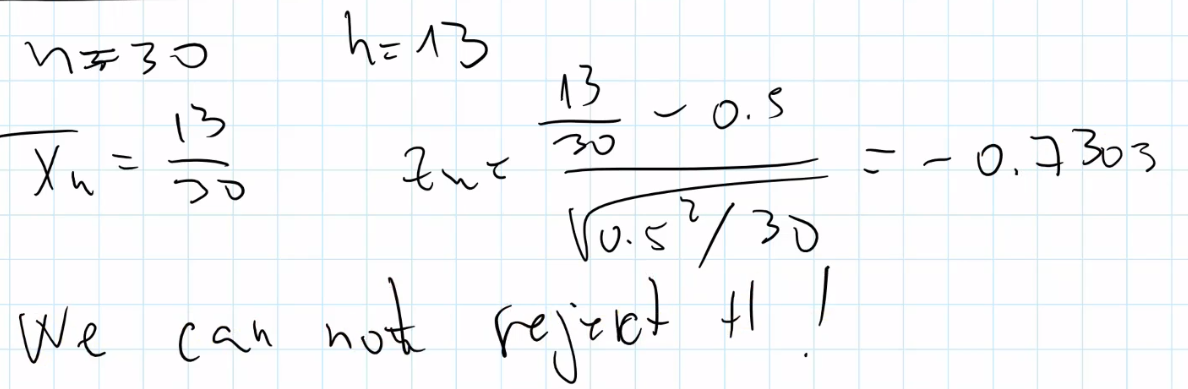 n=30 h=13
X̄ₙ = 13/30 zₙ = (13/30 - 0.5)/√(0.5²/30) = -0.7303
We can not reject H !